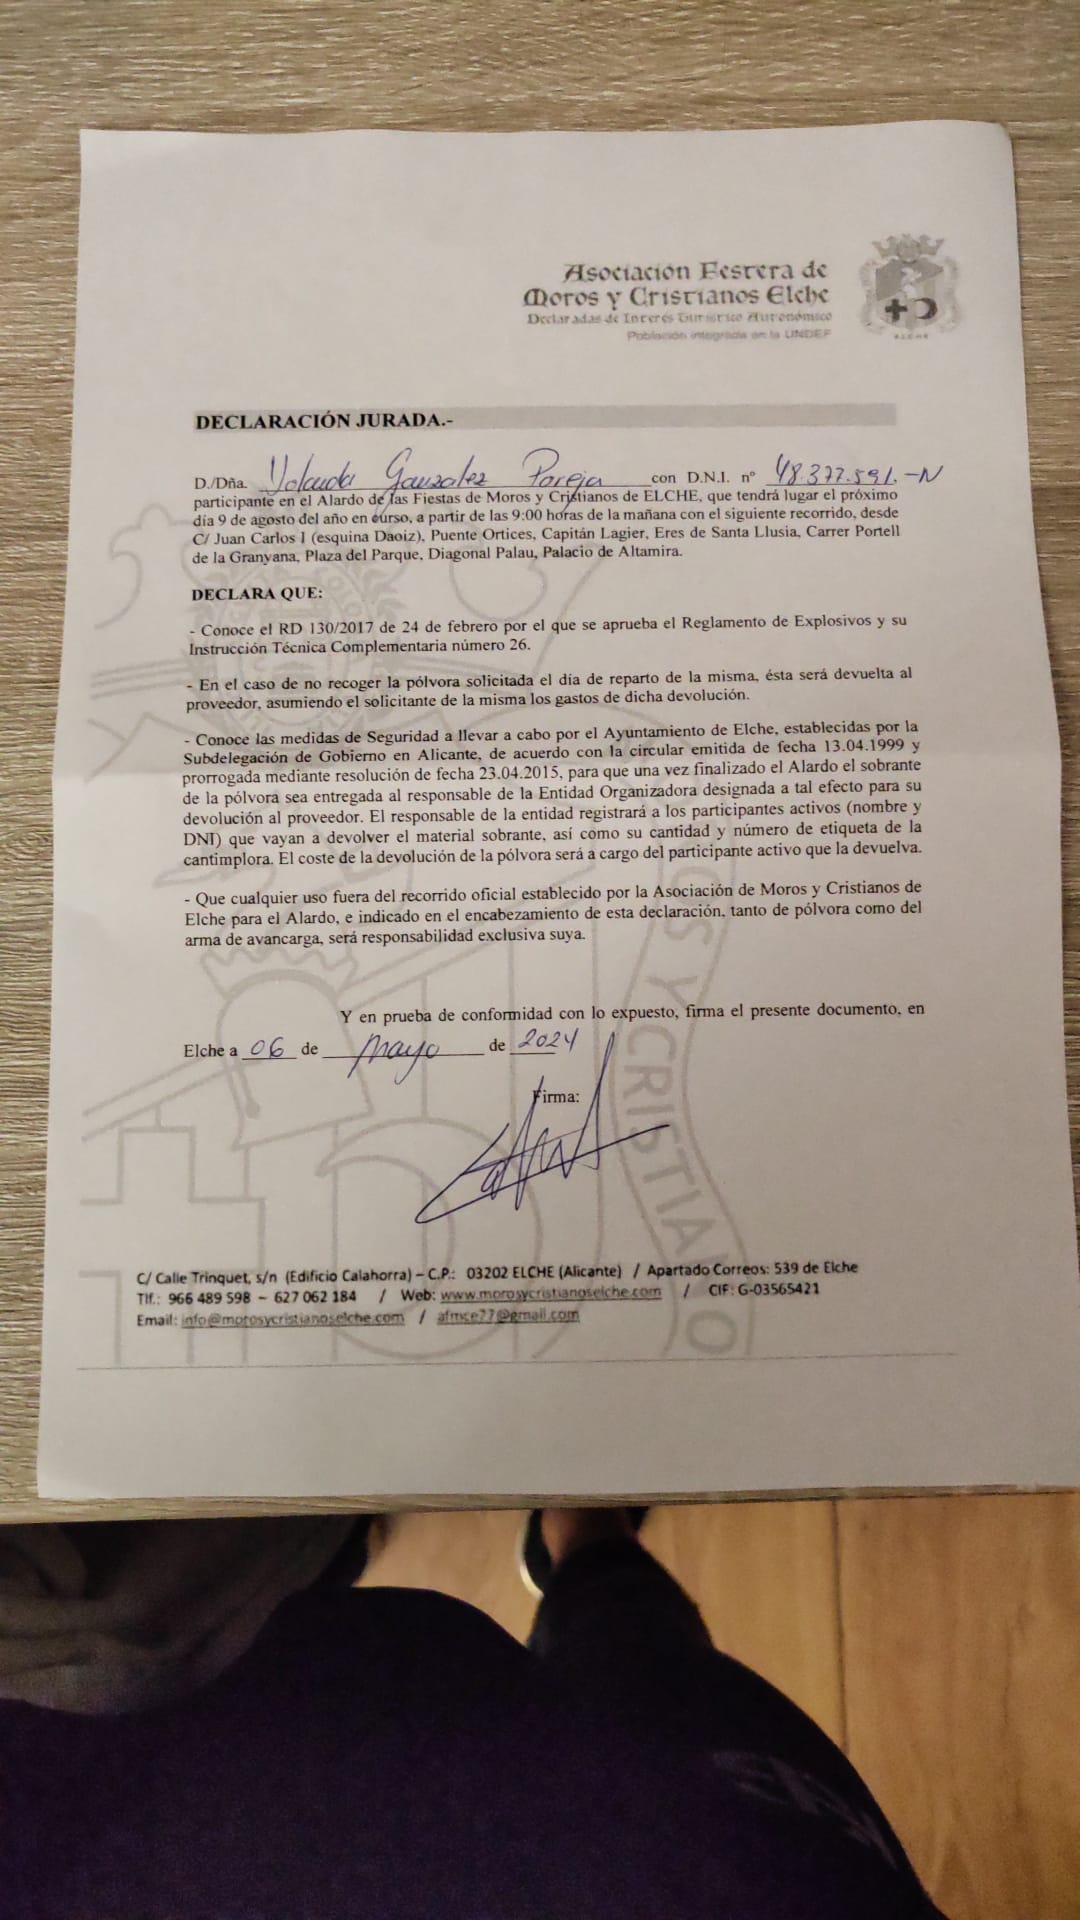 Asociación Festera de
Moros y Cristianos Elche
Declaradas de Interés Turístico Autonómico
Población integrada en la UNDEF
ELCHE
DECLARACIÓN JURADA.-
D./Dña. Yolanda Gonzalez Pareja con D.N.I. nº 48.377.591.-N
participante en el Alardo de las Fiestas de Moros y Cristianos de ELCHE, que tendrá lugar el próximo
día 9 de agosto del año en curso, a partir de las 9:00 horas de la mañana con el siguiente recorrido, desde
C/ Juan Carlos I (esquina Daoiz), Puente Ortices, Capitán Lagier, Eres de Santa Llusia, Carrer Portell
de la Granyana, Plaza del Parque, Diagonal Palau, Palacio de Altamira.
DECLARA QUE:
- Conoce el RD 130/2017 de 24 de febrero por el que se aprueba el Reglamento de Explosivos y su
Instrucción Técnica Complementaria número 26.
- En el caso de no recoger la pólvora solicitada el día de reparto de la misma, ésta será devuelta al
proveedor, asumiendo el solicitante de la misma los gastos de dicha devolución.
- Conoce las medidas de Seguridad a llevar a cabo por el Ayuntamiento de Elche, establecidas por la
Subdelegación de Gobierno en Alicante, de acuerdo con la circular emitida de fecha 13.04.1999 y
prorrogada mediante resolución de fecha 23.04.2015, para que una vez finalizado el Alardo el sobrante
de la pólvora sea entregada al responsable de la Entidad Organizadora designada a tal efecto para su
devolución al proveedor. El responsable de la entidad registrará a los participantes activos (nombre y
DNI) que vayan a devolver el material sobrante, así como su cantidad y número de etiqueta de la
cantimplora. El coste de la devolución de la pólvora será a cargo del participante activo que la devuelva.
- Que cualquier uso fuera del recorrido oficial establecido por la Asociación de Moros y Cristianos de
Elche para el Alardo, e indicado en el encabezamiento de esta declaración, tanto de pólvora como del
arma de avancarga, será responsabilidad exclusiva suya.
Y en prueba de conformidad con lo expuesto, firma el presente documento, en
Elche a 06 de mayo de 2024
Firma:
OS Y CRISTIANO
C/ Calle Trinquet, s/n (Edificio Calahorra) – C.P.: 03202 ELCHE (Alicante) / Apartado Correos: 539 de Elche
Tlf.: 966 489 598 – 627 062 184 / Web: www.morosycristianoselche.com / CIF: G-03565421
Email: info@morosycristianoselche.com / afmce77@gmail.com